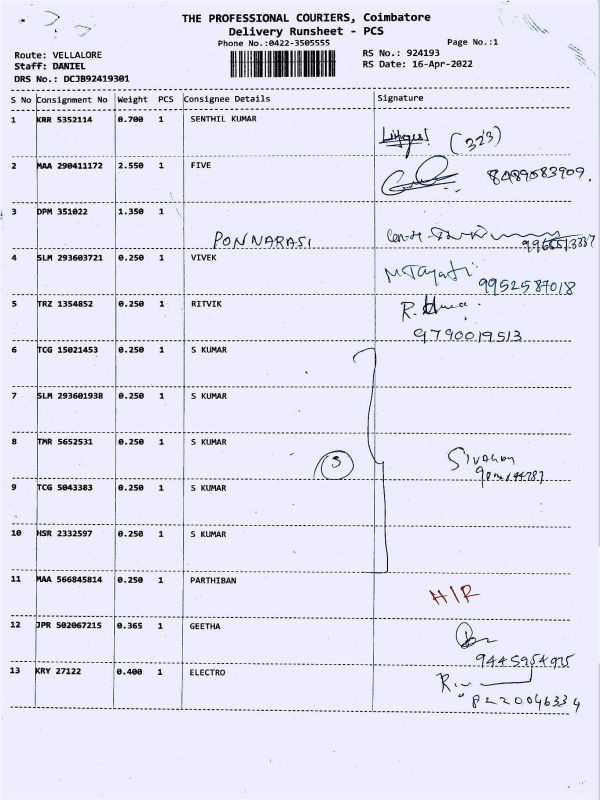 THE PROFESSIONAL COURIERS, Coimbatore
Delivery Runsheet - PCS
Phone No.:0422-3505555
Page No.:1
Route: VELLALORE
RS No.: 924193
Staff: DANIEL
RS Date: 16-Apr-2022
DRS No.: DCJB92419301
S No Consignment No Weight PCS Consignee Details Signature
1 KRR 5352114 0.700 1 SENTHIL KUMAR
(323)
2 MAA 290411172 2.550 1 FIVE
8489583909.
3 DPM 351022 1.350 1
PONNARASI
4 SLM 293603721 0.250 1 VIVEK
9952587018
5 TRZ 1354852 0.250 1 RITVIK
9790019513
6 TCG 15021453 0.250 1 S KUMAR
7 SLM 293601938 0.250 1 S KUMAR
8 TMR 5652531 0.250 1 S KUMAR
5
9 TCG 5043383 0.250 1 S KUMAR
10 HSR 2332597 0.250 1 S KUMAR
11 MAA 566845814 0.250 1 PARTHIBAN
H/R
12 JPR 502067215 0.365 1 GEETHA
13 KRY 27122 0.400 1 ELECTRO
8220046334